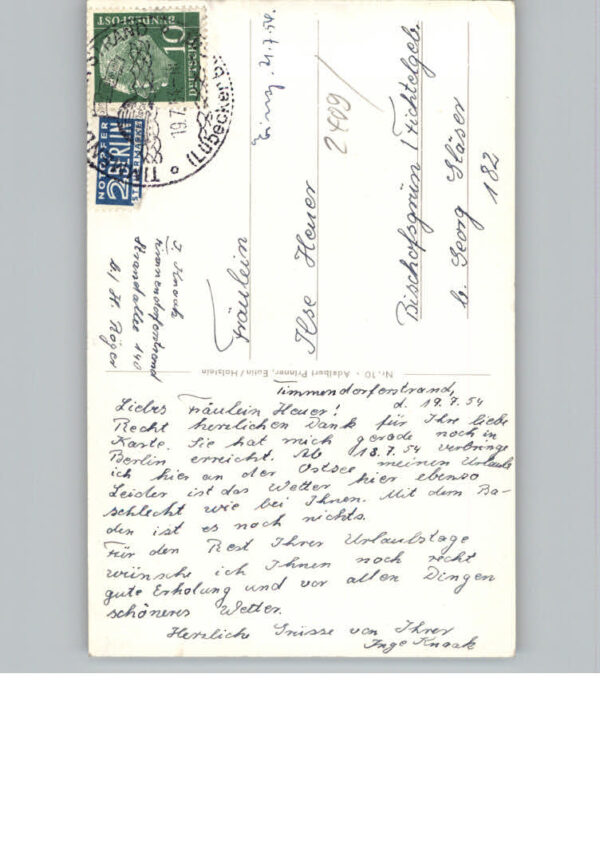 DEUTSCHE
BUNDESPOST
10
NOTOPFER
2 BERLIN
STEUERMARKE
19.7.
(Lübecker
Eing. 21.7.54.
2409
Fräulein
Ilse Heuer
Bischofsgrün / Fichtelgeb.
b. Georg Gläser
182
I. Knaak
Timmendorferstrand
Strandallee 140
b/ H. Röger
Nr. 10 · Adalbert Prinner, Eutin/Holstein
Timmendorferstrand,
d. 19.7.54
Liebes Fräulein Heuer!
Recht herzlichen Dank für Ihre liebe
Karte. Sie hat mich gerade noch in
Berlin erreicht. Ab 18.7.54 verbringe
ich hier an der Ostsee meinen Urlaub.
Leider ist das Wetter hier ebenso
schlecht wie bei Ihnen. Mit dem Ba-
den ist es noch nichts.
Für den Rest Ihrer Urlaubstage
wünsche ich Ihnen noch recht
gute Erholung und vor allen Dingen
schöneres Wetter.
Herzliche Grüsse von Ihrer
Inge Knaak